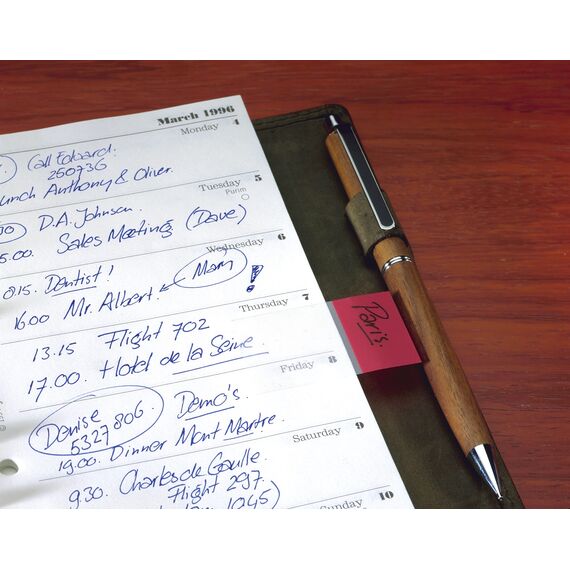 March 1996
Monday 4
Call Eduard.
250736
Lunch Anthony & Oliver.
Tuesday 5
Purim
D.A. Johnson
5.00. Sales Meeting (Dave)
Wednesday 6
8.15. Dentist!
Mam!
16.00 Mr. Albert.
Thursday 7
13.15 Flight 702
17.00. Hotel de la Seine
Paris.
Friday 8
Denise
5327806
Demo's.
19.00. Dinner Mont Martre.
Saturday 9
9.30. Charles de Gaulle.
Flight 297.
1045)
Sunday 10